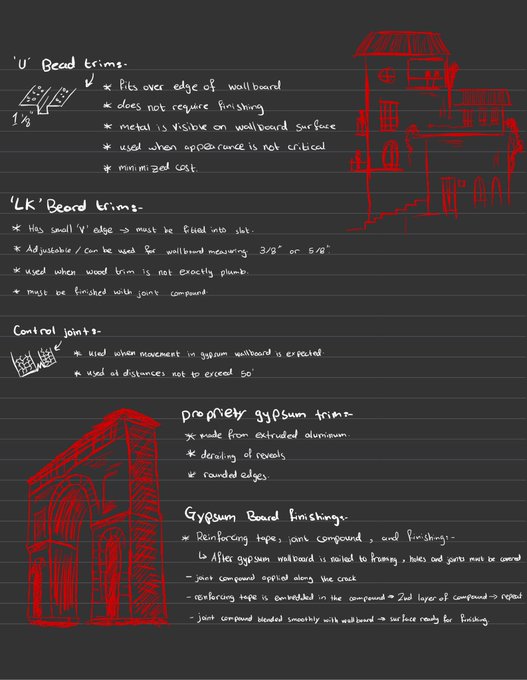 'U' Bead trims:-
* fits over edge of wallboard
* does not require finishing
* metal is visible on wallboard surface
* used when appearance is not critical
* minimized cost.
1 1/8"
'LK' Beard trims:-
* Has small 'V' edge → must be fitted into slot.
* Adjustable / can be used for wallboard measuring 3/8" or 5/8".
* used when wood trim is not exactly plumb.
* must be finished with joint compound.
Control joints:-
* used when movement in gypsum wallboard is expected.
* used at distances not to exceed 50'
propriety gypsum trims:-
* made from extruded aluminum.
* derailing of reveals
* rounded edges.
Gypsum Board finishing:-
* Reinforcing tape, joint compound, and finishing:-
↳ After gypsum wallboard is nailed to framing, holes and joints must be covered
- joint compound applied along the crack
- reinforcing tape is embedded in the compound → 2nd layer of compound → repeat
- joint compound blended smoothly with wallboard → surface ready for finishing.